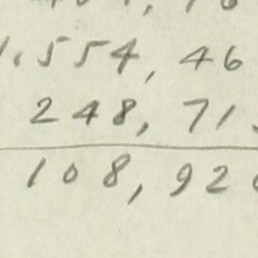 1.554, 46
248, 71
108, 92